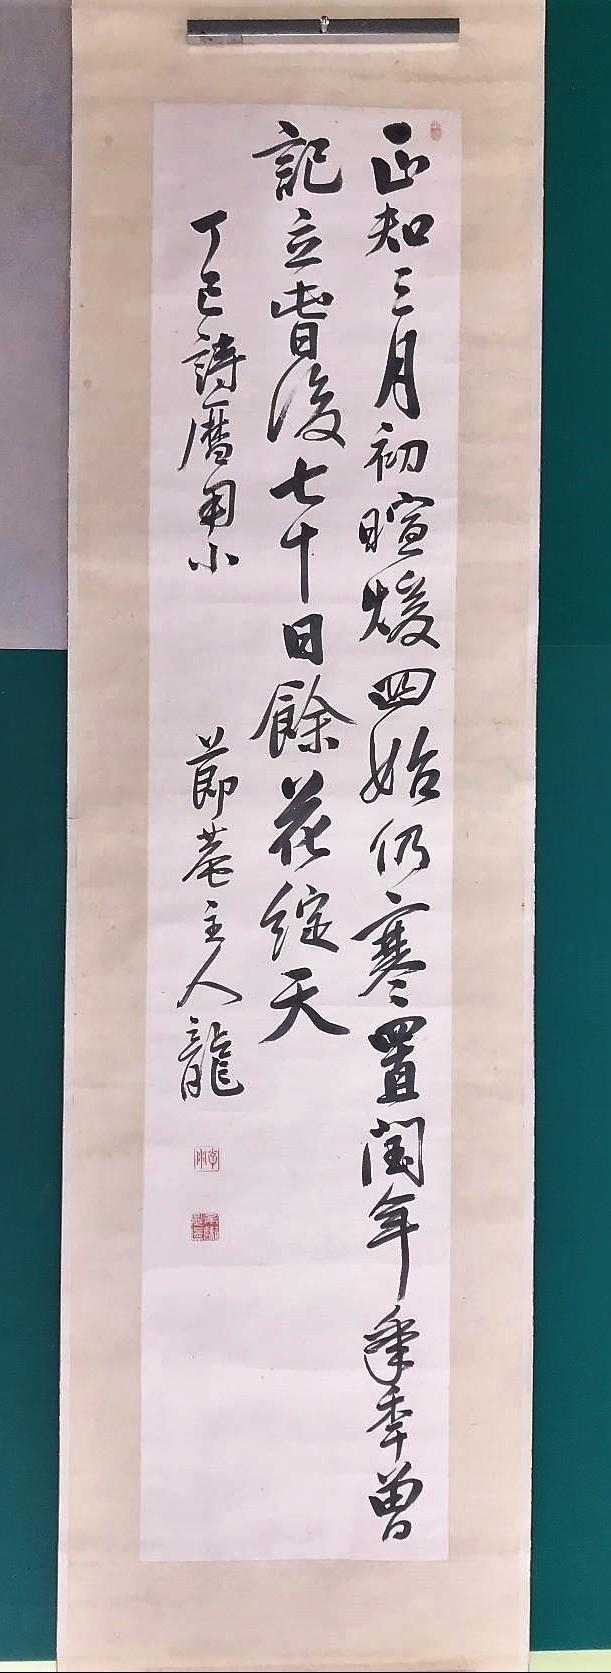 正知三月初暄煖四始仍寒置閏年季曾
記立旾後七十日餘花綻天
丁巳詩曆用小
節菴主人龍